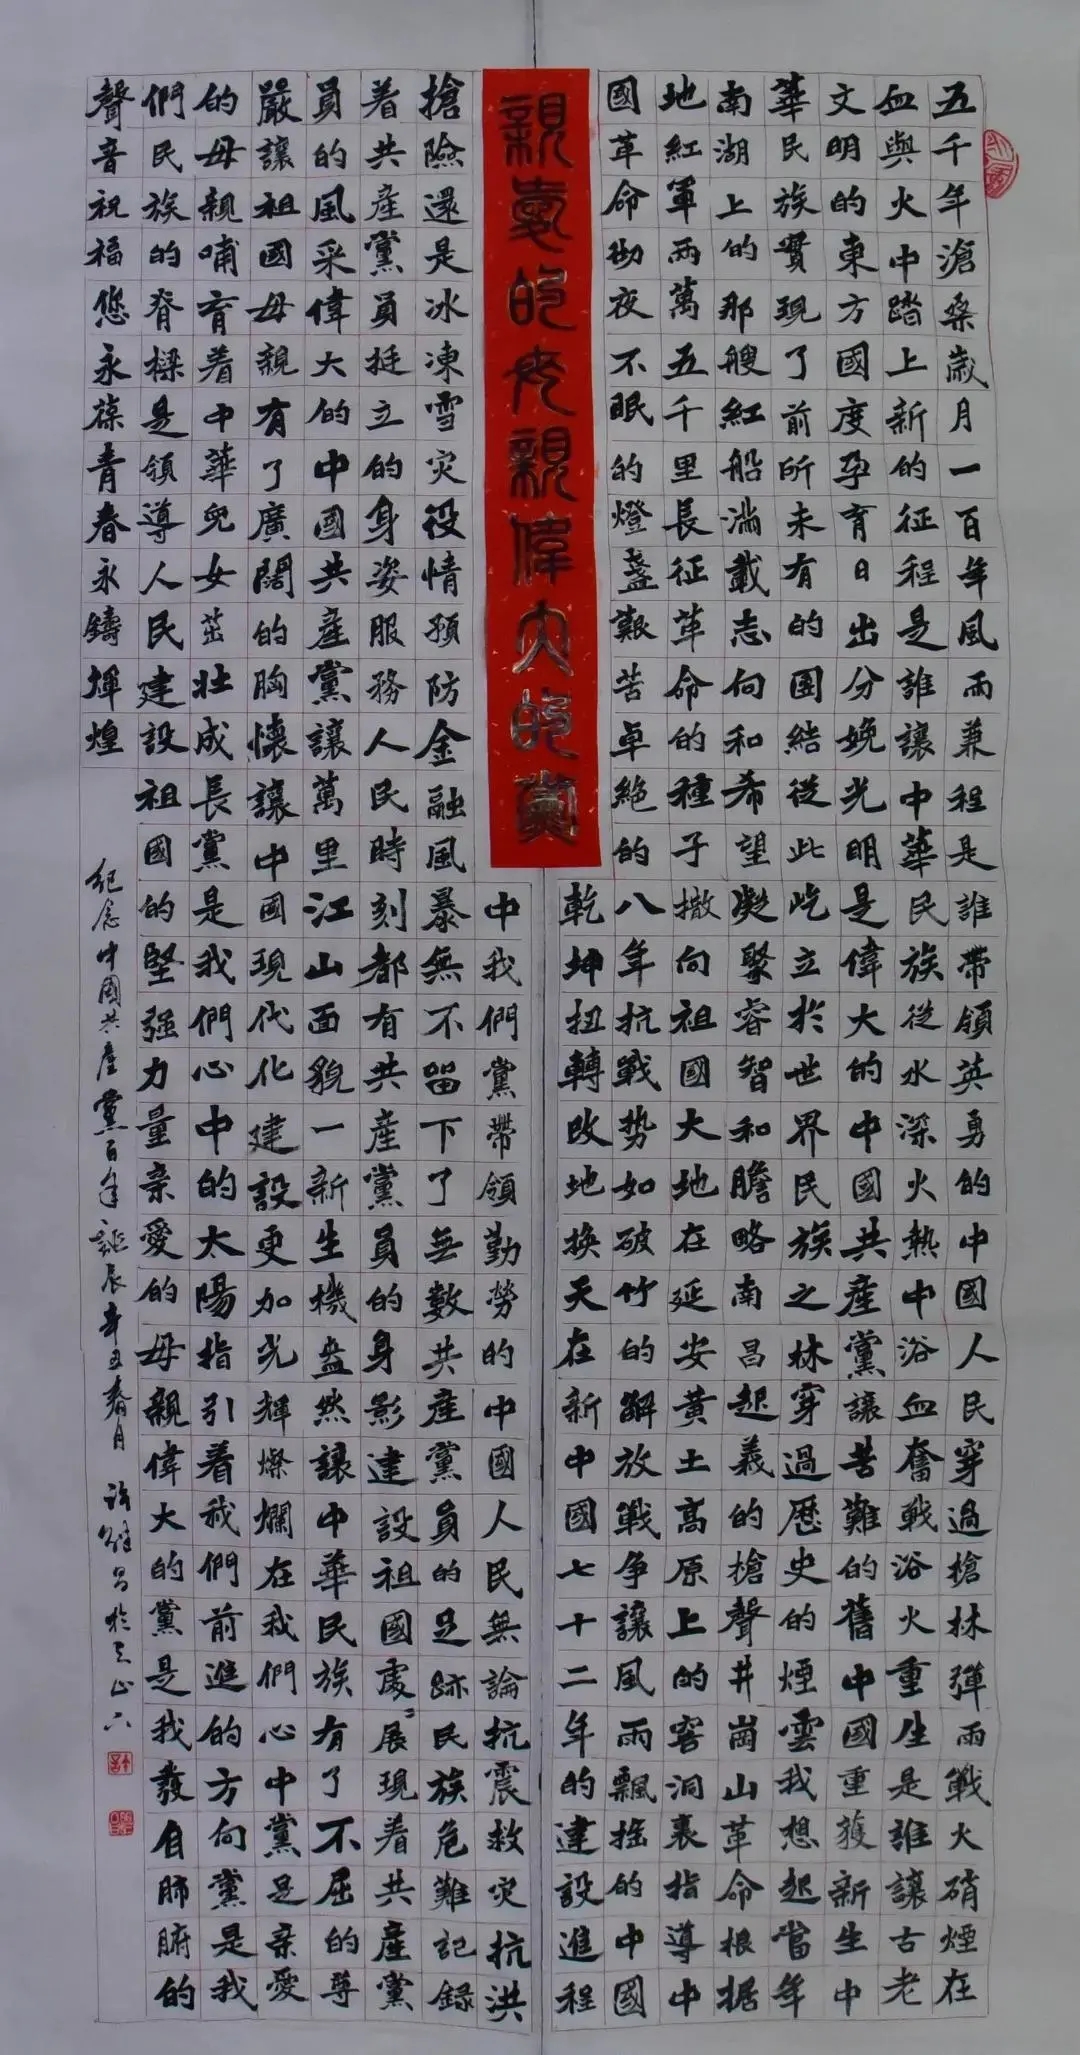 五千年滄桑歲月一百年風雨兼程是誰帶領英勇的中國人民穿過槍林彈雨戰火硝煙在
血與火中踏上新的征程是誰讓中華民族從水深火熱中浴血奮戰浴火重生是誰讓古老
文明的東方國度孕育日出分娩光明是偉大的中國共產黨讓苦難的舊中國重獲新生中
華民族實現了前所未有的團結從此屹立於世界民族之林穿過歷史的煙雲我想起當年
南湖上的那艘紅船滿載志向和希望凝聚睿智和膽略南昌起義的槍聲井崗山革命根据
地紅軍兩萬五千里長征革命的種子撒向祖國大地在延安黃土高原上的窑洞裏指導中
國革命彻夜不眠的燈盞艱苦卓絕的八年抗戰势如破竹的解放戰争讓風雨飄摇的中國
乾坤扭轉改地換天在新中國七十二年的建設進程
親愛的母親偉大的黨
中我們黨帶領勤勞的中國人民無論抗震救灾抗洪
搶險還是冰凍雪灾役情預防金融風暴無不留下了無數共產黨員的足跡民族危難記録
着共產黨員挺立的身姿服務人民時刻都有共產黨員的身影建設祖國處〻展現着共產黨
員的風采偉大的中國共產黨讓萬里江山面貌一新生機盎然讓中華民族有了不屈的尊
嚴讓祖國母親有了廣闊的胸懷讓中國現代化建設更加光輝燦爛在我們心中黨是亲愛
的母親哺育着中華兒女茁壯成長黨是我們心中的太陽指引着我們前進的方向黨是我
們民族的脊樑是領導人民建設祖國的堅强力量亲愛的母親偉大的黨是我發自肺腑的
聲音祝福您永葆青春永鑄輝煌
紀念中國共產黨百年誕辰辛丑春月